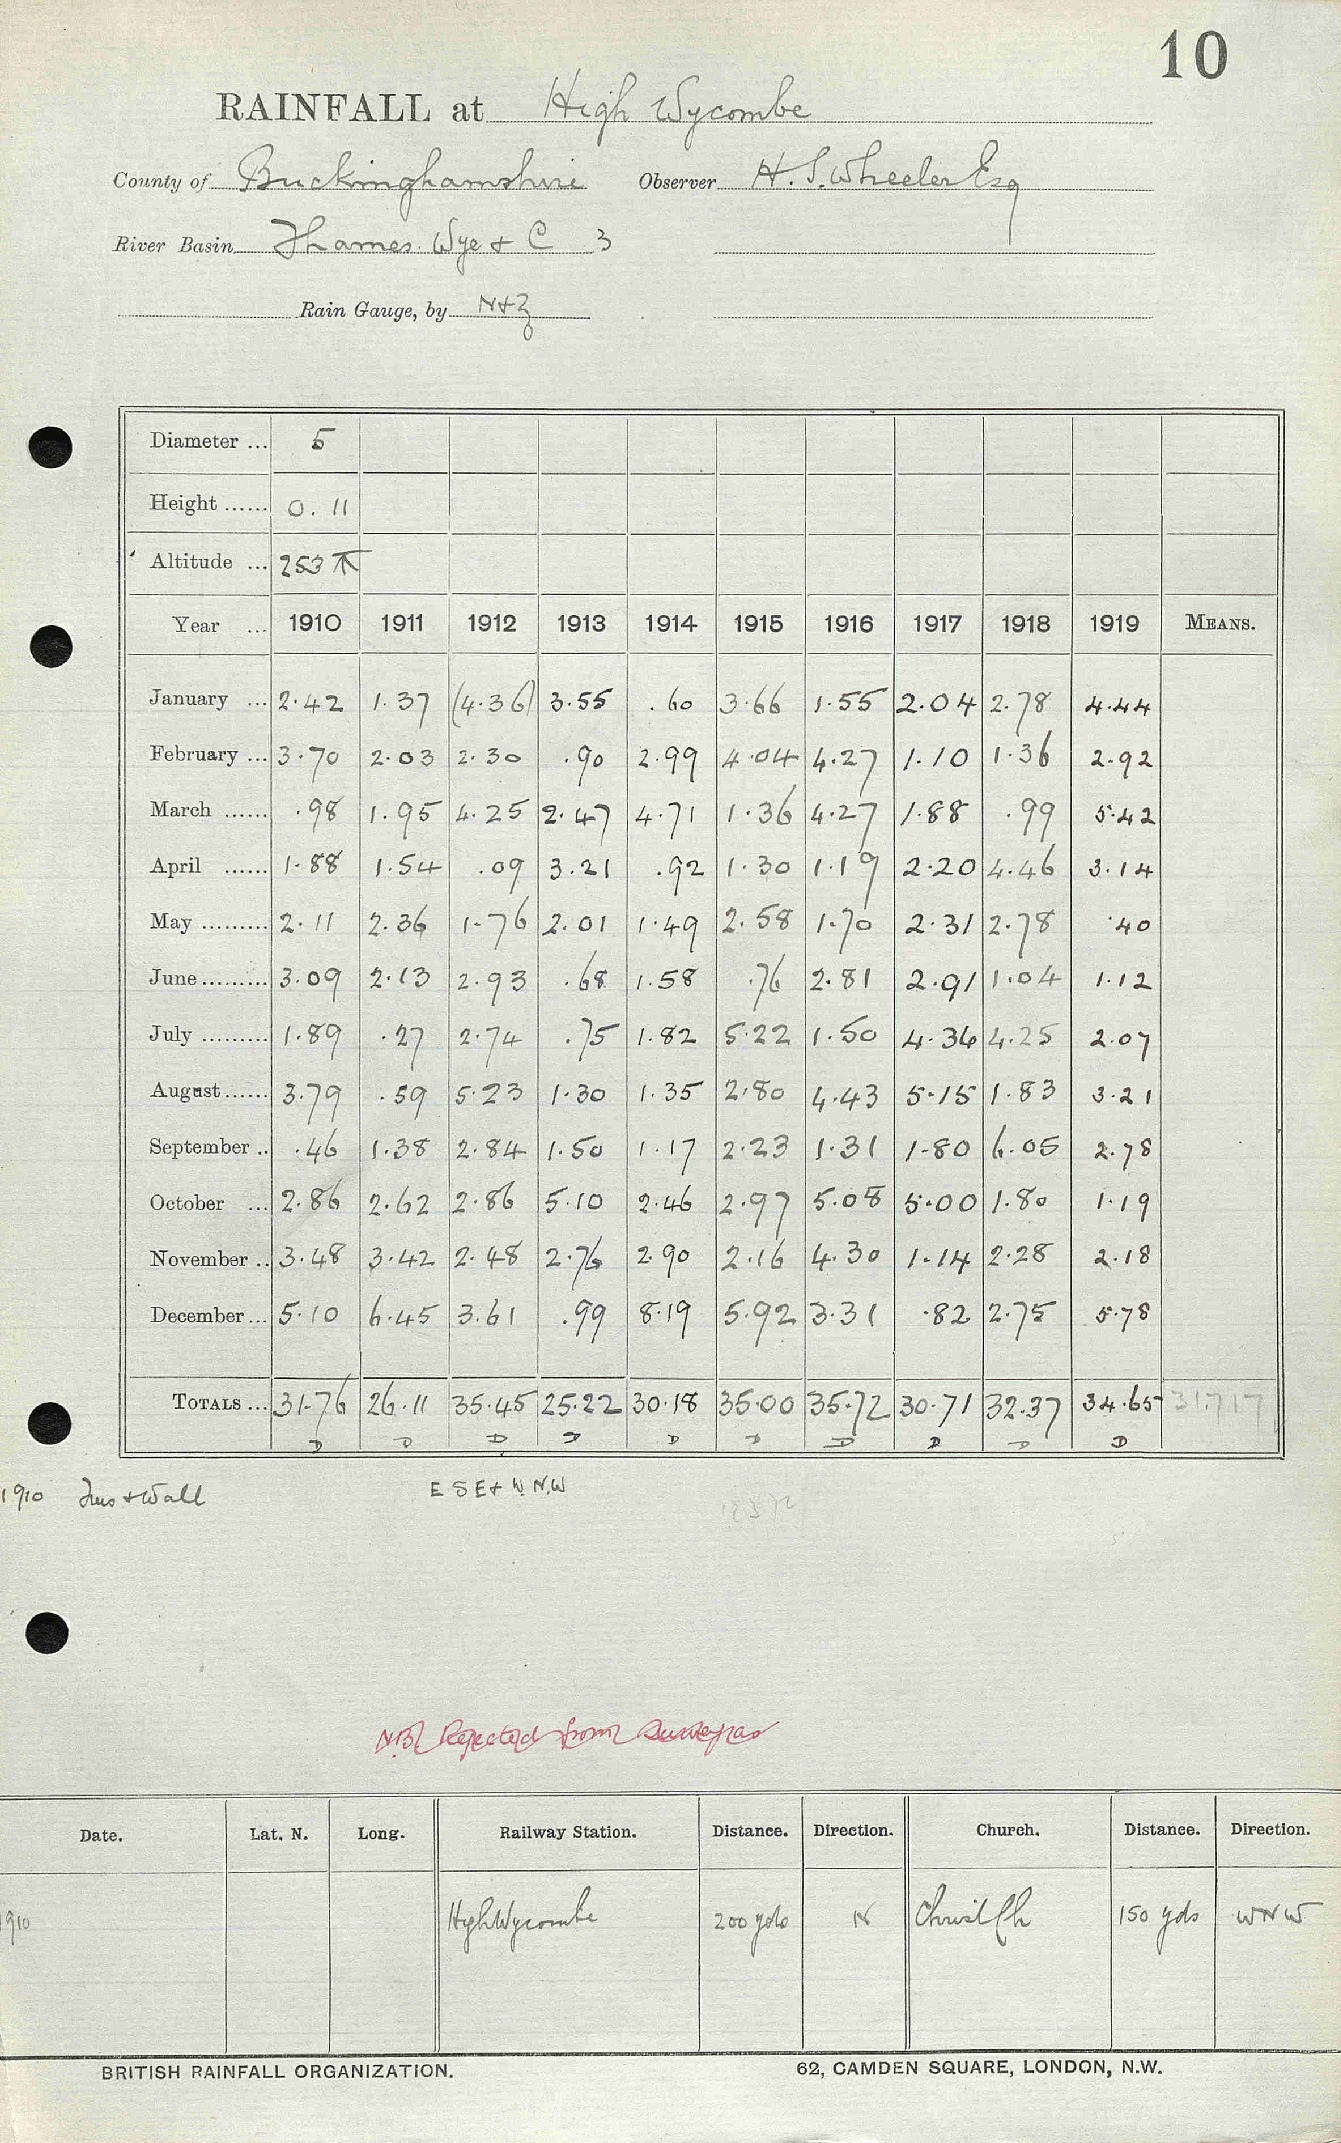 10
RAINFALL at High Wycombe
County of Buckinghamshire Observer H. S. Wheeler Esq
River Basin Thames. Wye & C 3
Rain Gauge, by N+Z
Diameter ... 5
Height ...... 0. 11
Altitude ... 253
Year ... 1910 1911 1912 1913 1914 1915 1916 1917 1918 1919 MEANS.
January ... 2.42 1.37 (4.36) 3.55 .60 3.66 1.55 2.04 2.78 4.44
February ... 3.70 2.03 2.30 .90 2.99 4.04 4.27 1.10 1.36 2.92
March ...... .98 1.95 4.25 2.47 4.71 1.36 4.27 1.88 .99 5.42
April ...... 1.88 1.54 .09 3.21 .92 1.30 1.19 2.20 4.46 3.14
May ......... 2.11 2.36 1.76 2.01 1.49 2.58 1.70 2.31 2.78 .40
June ......... 3.09 2.13 2.93 .68 1.58 .76 2.81 2.91 1.04 1.12
July ......... 1.89 .27 2.74 .75 1.82 5.22 1.50 4.36 4.25 2.07
August ...... 3.79 .59 5.23 1.30 1.35 2.80 4.43 5.15 1.83 3.21
September .. .46 1.38 2.84 1.50 1.17 2.23 1.31 1.80 6.05 2.78
October ... 2.86 2.62 2.86 5.10 2.46 2.97 5.08 5.00 1.80 1.19
November .. 3.48 3.42 2.48 2.76 2.90 2.16 4.30 1.14 2.28 2.18
December ... 5.10 6.45 3.61 .99 8.19 5.92 3.31 .82 2.75 5.78
TOTALS ... 31.76 26.11 35.45 25.22 30.18 35.00 35.72 30.71 32.37 34.65 31.717
D D D D D D D D D D
1910 + Wall E S E + W. N.W
N.B. Rejected from
Date. Lat. N. Long. Railway Station. Distance. Direction. Church. Distance. Direction.
1910 High Wycombe 200 yds N Christ Ch 150 yds WNW
BRITISH RAINFALL ORGANIZATION. 62, CAMDEN SQUARE, LONDON, N.W.